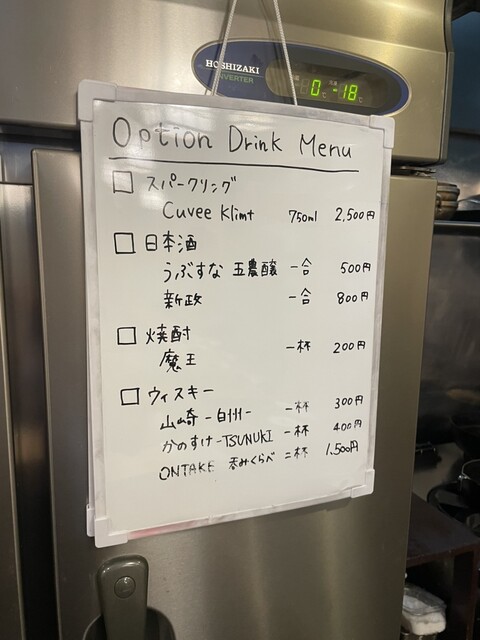 HOSHIZAKI
INVERTER
0 -18
Option Drink Menu
□ スパークリング
Cuvee Klimt 750ml 2,500円
□ 日本酒
うぶすな 五農醸 一合 500円
新政 一合 800円
□ 焼酎
魔王 一杯 200円
□ ウィスキー
山崎 -白州- 一杯 300円
かのすけ-TSUNUKI 一杯 400円
ONTAKE 呑みくらべ 二杯 1,500円